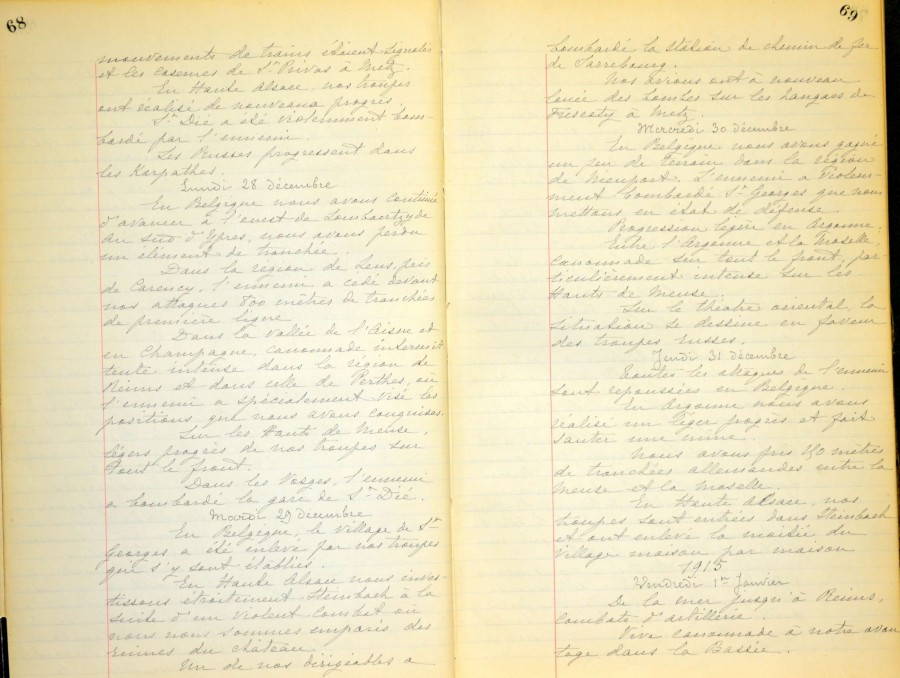 68
mouvements de trains étaient signalés
et les casernes de St Privas à Metz.
En Haute Alsace, nos troupes
ont réalisé de nouveaux progrès.
St Dié a été violemment bom-
bardé par l'ennemi.
Les Russes progressent dans
les Karpathes.
Lundi 28 décembre
En Belgique nous avons continué
d'avancer à l'ouest de Lombartzyde
au sud d'Ypres, nous avons perdu
un élément de tranchée.
Dans la région de Lens, près
de Carency, l'ennemi a cédé devant
nos attaques 800 mètres de tranchées
de première ligne
Dans la vallée de l'Aisne et
en Champagne, canonnade intermit
tente intense dans la région de
Reims et dans celle de Perthes, où
l'ennemi a spécialement visé les
positions que nous avons conquises.
Sur les Hauts de Meuse,
légers progrès de nos troupes sur
tout le front.
Dans les Vosges, l'ennemi
a bombardé la gare de St Dié.
Mardi 29 Décembre
En Belgique, le village de St
Georges a été enlevé par nos troupes
qui s'y sont établies.
En Haute Alsace nous inves-
tissons étroitement Steinbach à la
suite d'un violent combat où
nous nous sommes emparés des
ruines du château.
Un de nos dirigeables a
69
bombardé la station de chemin de fer
de Sarrebourg.
Nos avions ont à nouveau
lancé des bombes sur les hangars de
Frescaty à Metz.
Mercredi 30 décembre
En Belgique nous avons gagné
un peu de terrain dans la région
de Nieuport. L'ennemi a violem-
ment bombardé St Georges que nous
mettons en état de défense.
Progression légère en Argonne.
Entre l'Argonne et la Moselle,
canonnade sur tout le front, par-
ticulièrement intense sur les
Hauts de Meuse.
Sur le théâtre oriental la
situation se dessine en faveur
des troupes russes.
Jeudi 31 décembre
Toutes les attaques de l'ennemi
sont repoussées en Belgique.
En Argonne nous avons
réalisé un léger progrès et fait
sauter une mine.
Nous avons pris mètres
de tranchées allemandes entre la
Meuse et la Moselle.
En Haute Alsace, nos
troupes sont entrées dans Steinbach
et ont enlevé la moitié du
village maison par maison
1915
Vendredi 1er Janvier
De la mer jusqu'à Reims,
combats d'artillerie.
Vive canonnade à notre avan
tage dans la Bassée.